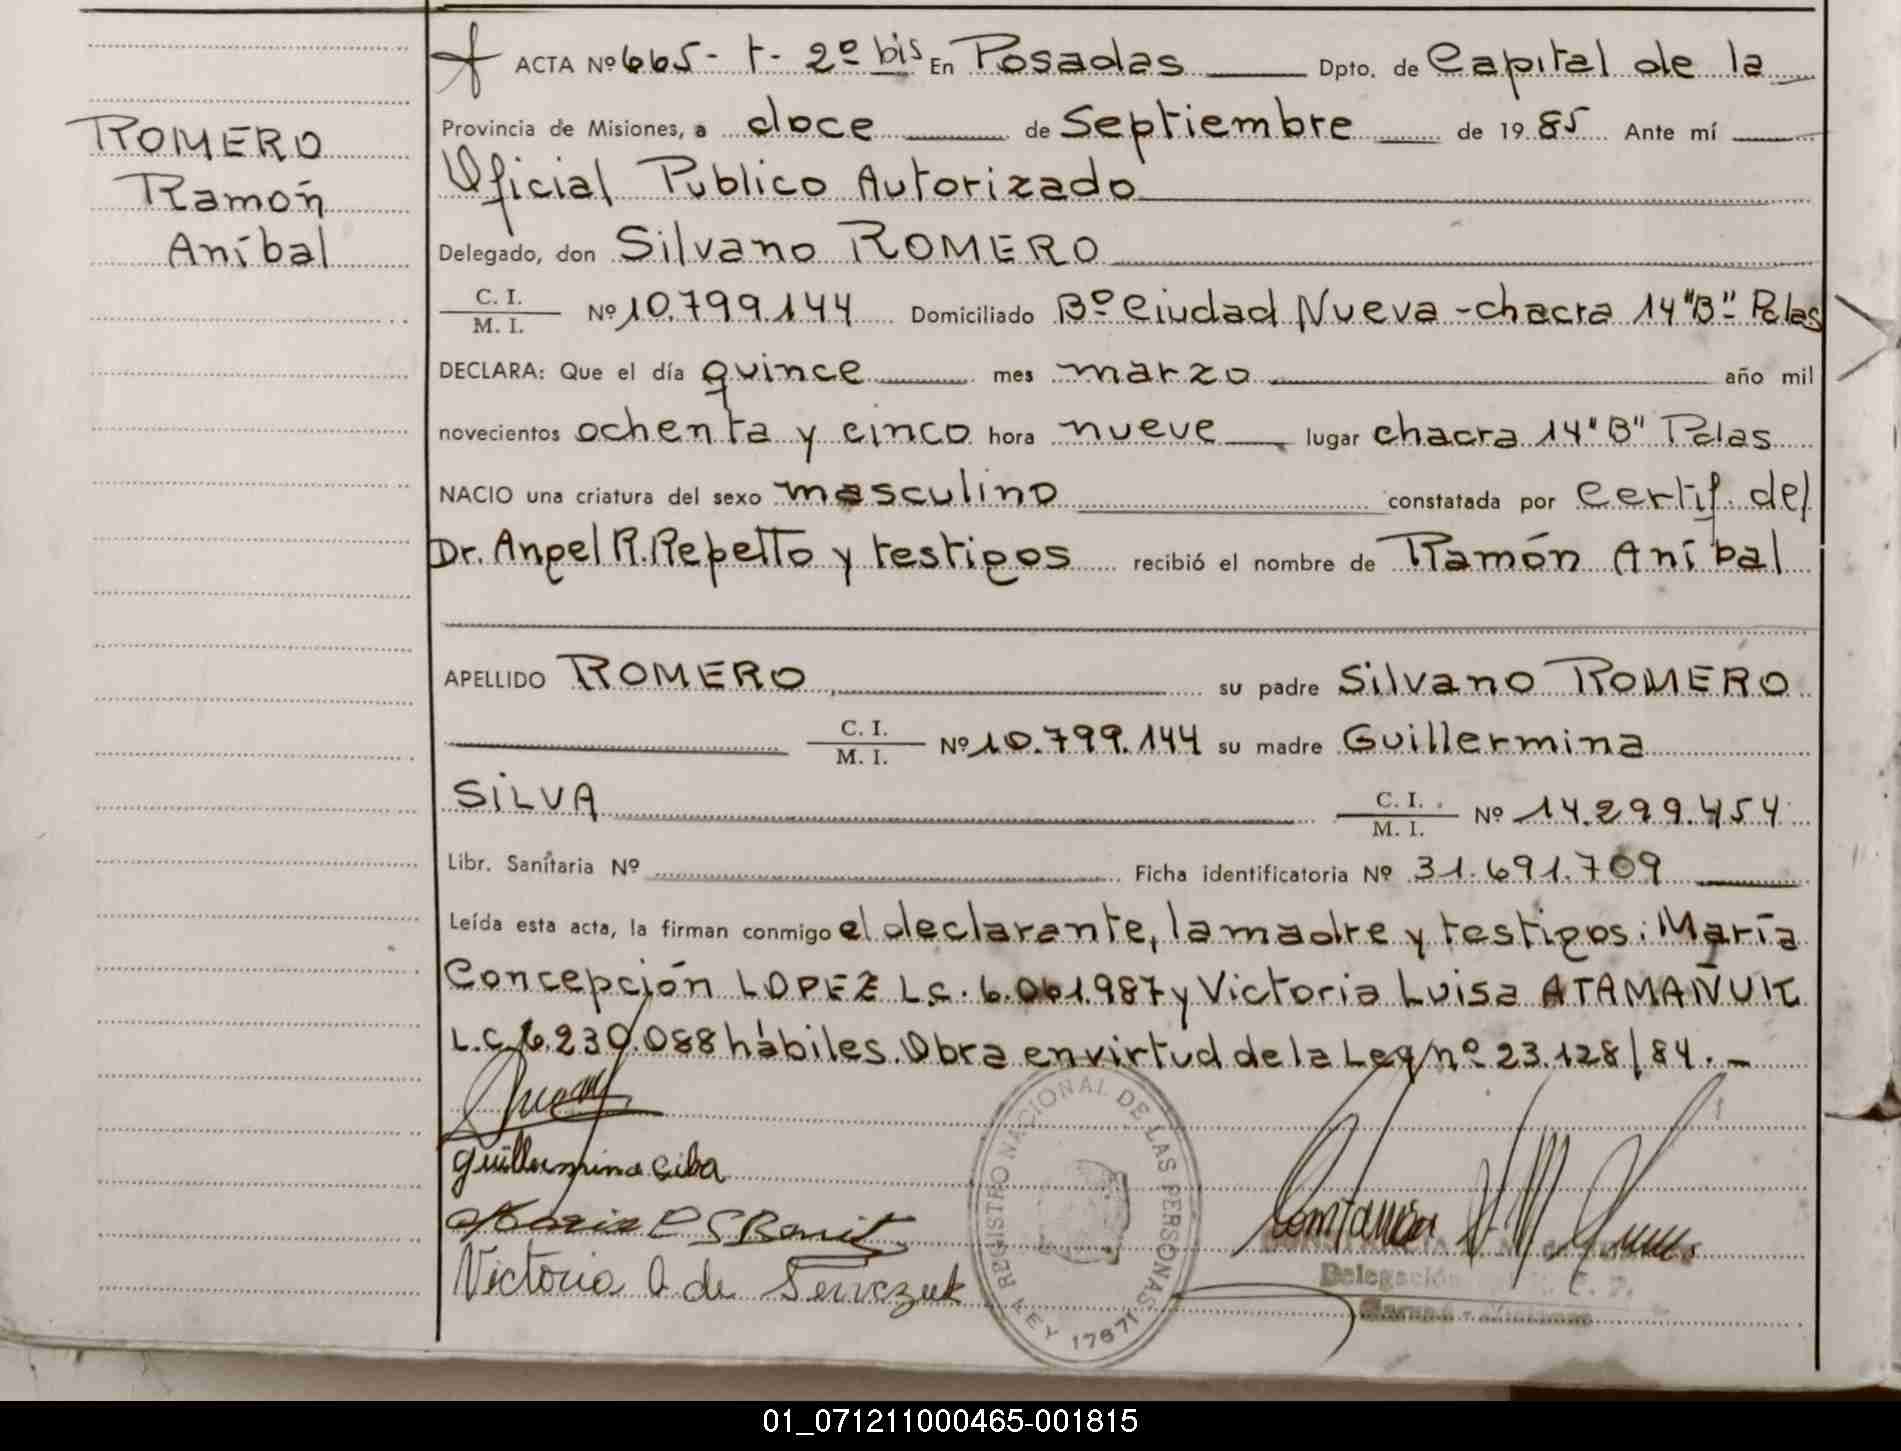 ROMERO
Ramón
Aníbal
ACTA Nº 665 - t - 2º bis En Posadas Dpto. de Capital de la
Provincia de Misiones, a doce de Septiembre de 1985 Ante mí
Oficial Publico Autorizado
Delegado, don Silvano ROMERO
C. I.
M. I. Nº 10.799.144 Domiciliado Bº Ciudad Nueva - chacra 14 "B" Pdas
DECLARA: Que el día quince mes marzo año mil
novecientos ochenta y cinco hora nueve lugar chacra 14 "B" Pdas
NACIO una criatura del sexo masculino constatada por Certif. del
Dr. Angel R. Repetto y testigos recibió el nombre de Ramón Aníbal
APELLIDO ROMERO su padre Silvano ROMERO
C. I.
M. I. Nº 10.799.144 su madre Guillermina
SILVA C. I.
M. I. Nº 14.299.454
Libr. Sanitaria Nº Ficha identificatoria Nº 31.691.709
Leída esta acta, la firman conmigo el declarante, la madre y testigos: María
Concepción LOPEZ L.C. 6.061.987 y Victoria Luisa ATAMAÑUK
L.C. 6.230.088 hábiles. Obra en virtud de la Ley nº 23.128/84. -
Guillermina Silva
Victoria A de
REGISTRO NACIONAL DE LAS PERSONAS
LEY 17671
Delegación
01_071211000465-001815